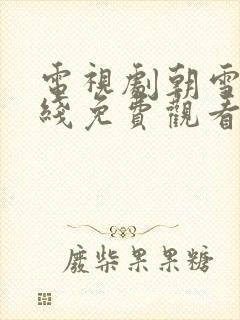 電視劇朝雪
綫免費觀看
廢柴果果糖